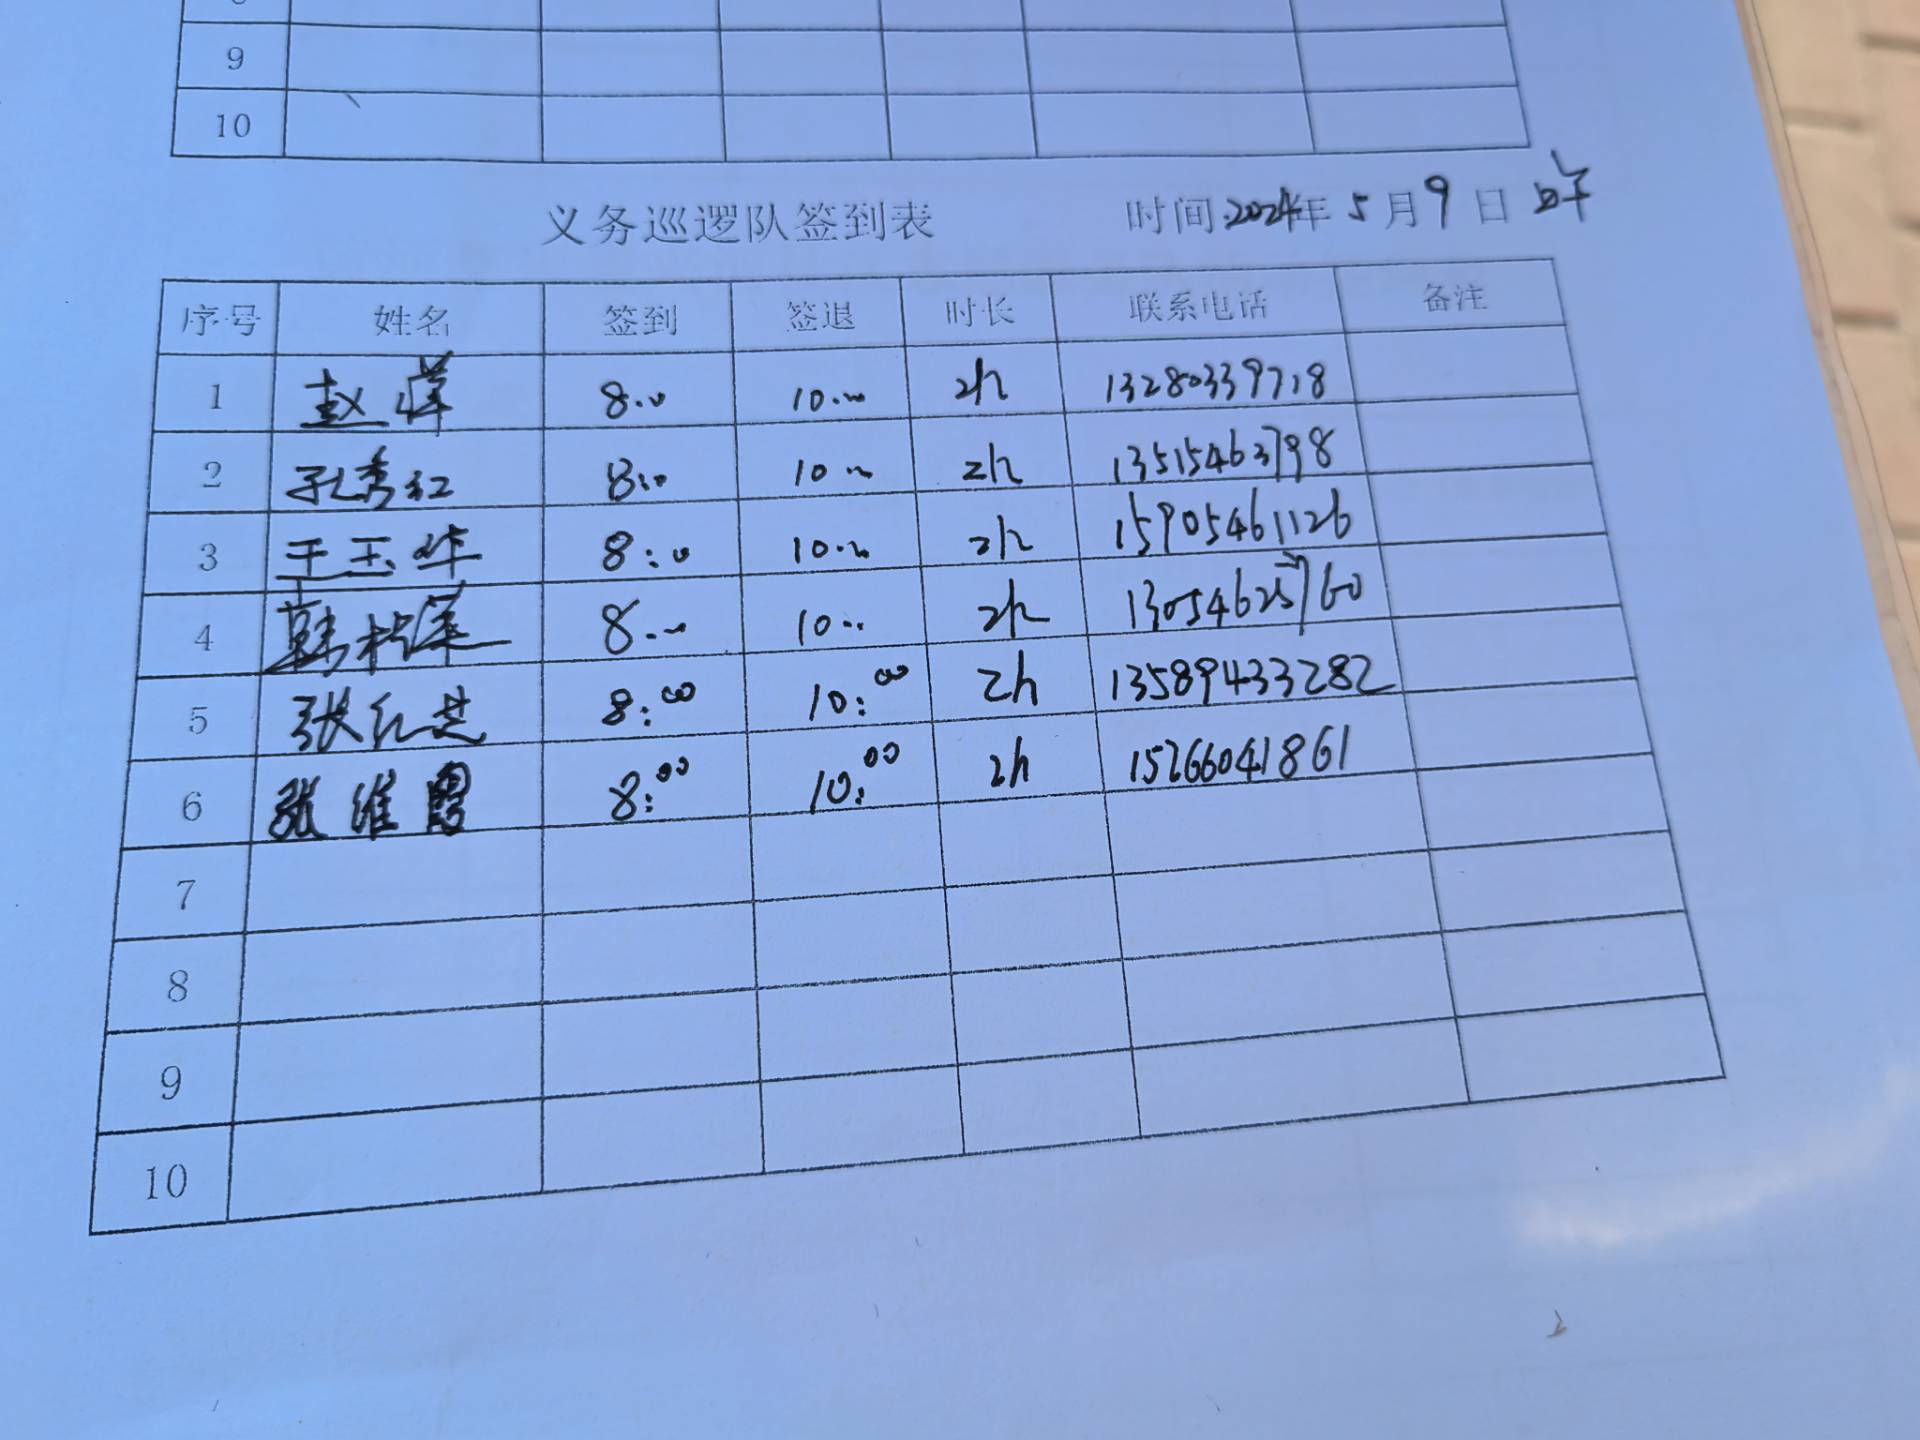 9
10
义务巡逻队签到表 时间:2024年 5 月 9 日
序号 姓名 签到 签退 时长 联系电话 备注
1 赵 8:00 10:00 2h 13280339718
2 孔秀红 8:00 10:00 2h 13515463798
3 王玉华 8:00 10:00 2h 15905461126
4 韩 8:00 10:00 2h 13054625760
5 张红芝 8:00 10:00 2h 13589433282
6 张维 8:00 10:00 2h 15266041861
7
8
9
10